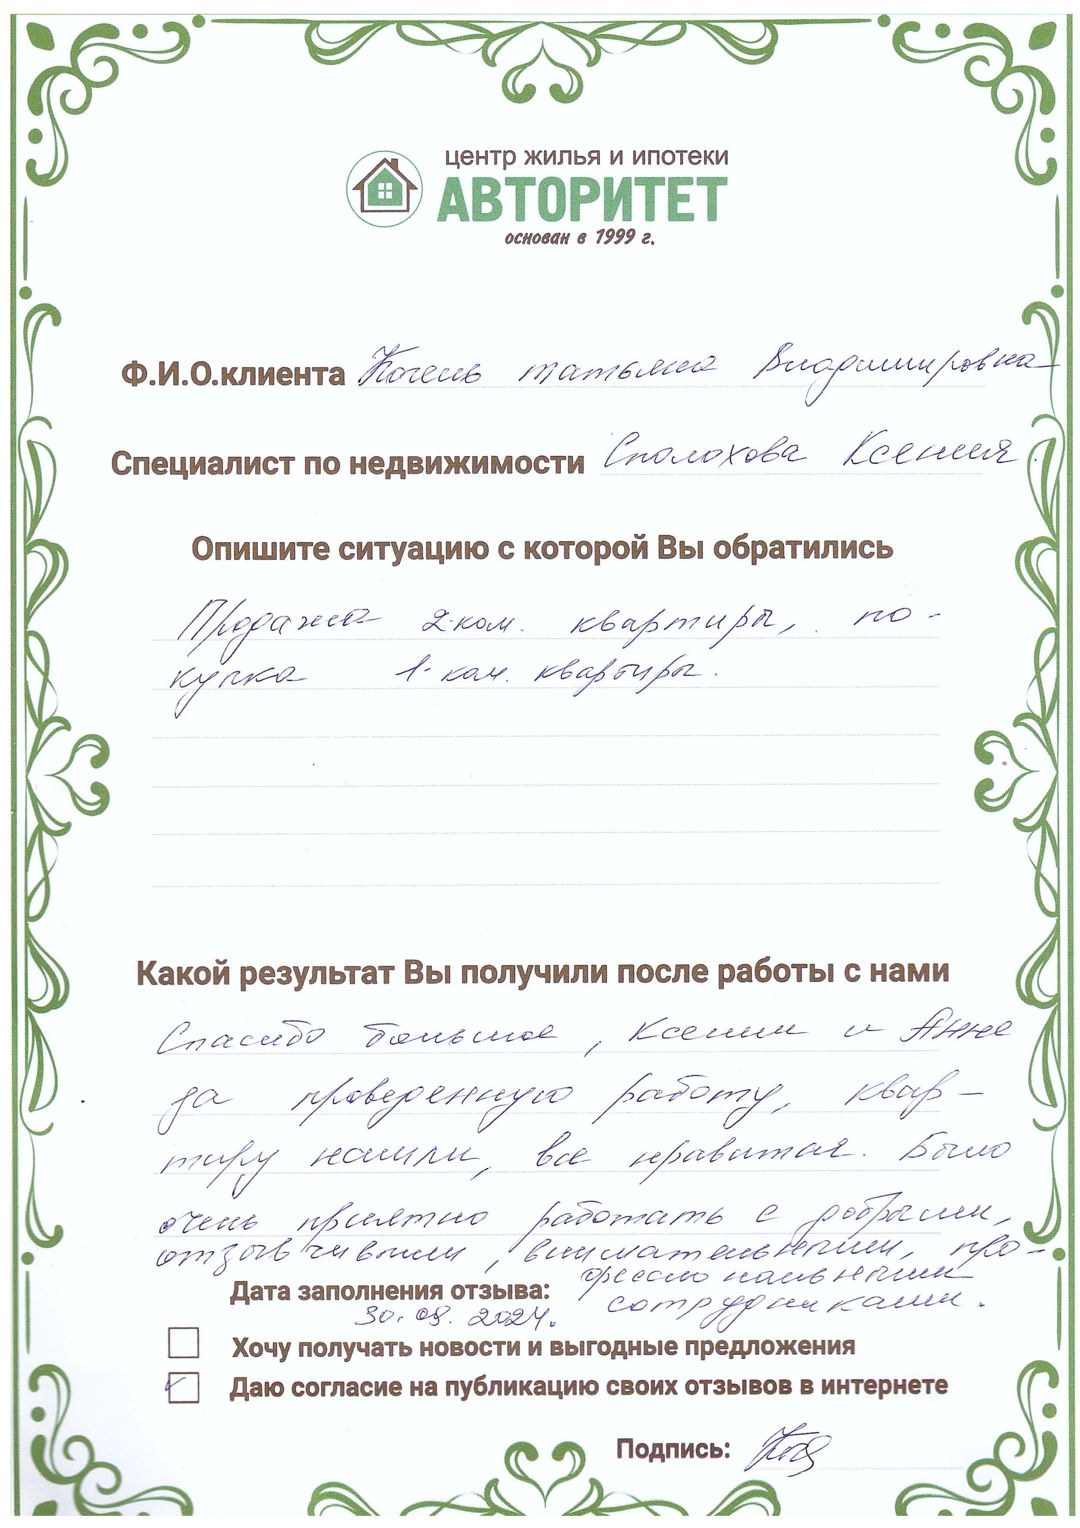 центр жилья и ипотеки
АВТОРИТЕТ
основан в 1999 г.
Ф.И.О.клиента Кочень татьяна Владимировна
Специалист по недвижимости Сполохова Ксения.
Опишите ситуацию с которой Вы обратились
Продажа 2-ком. квартиры, по-
купка 1-ком. квартиры.
Какой результат Вы получили после работы с нами
Спасибо большое, Ксении и Анне
за проведенную работу, квар-
тиру нашли, все нравится. Было
очень приятно работать с добрыми,
отзывчивыми, внимательными, про-
фессиональными
Дата заполнения отзыва: сотрудниками.
30.08.2024.
Хочу получать новости и выгодные предложения
Даю согласие на публикацию своих отзывов в интернете
Подпись: